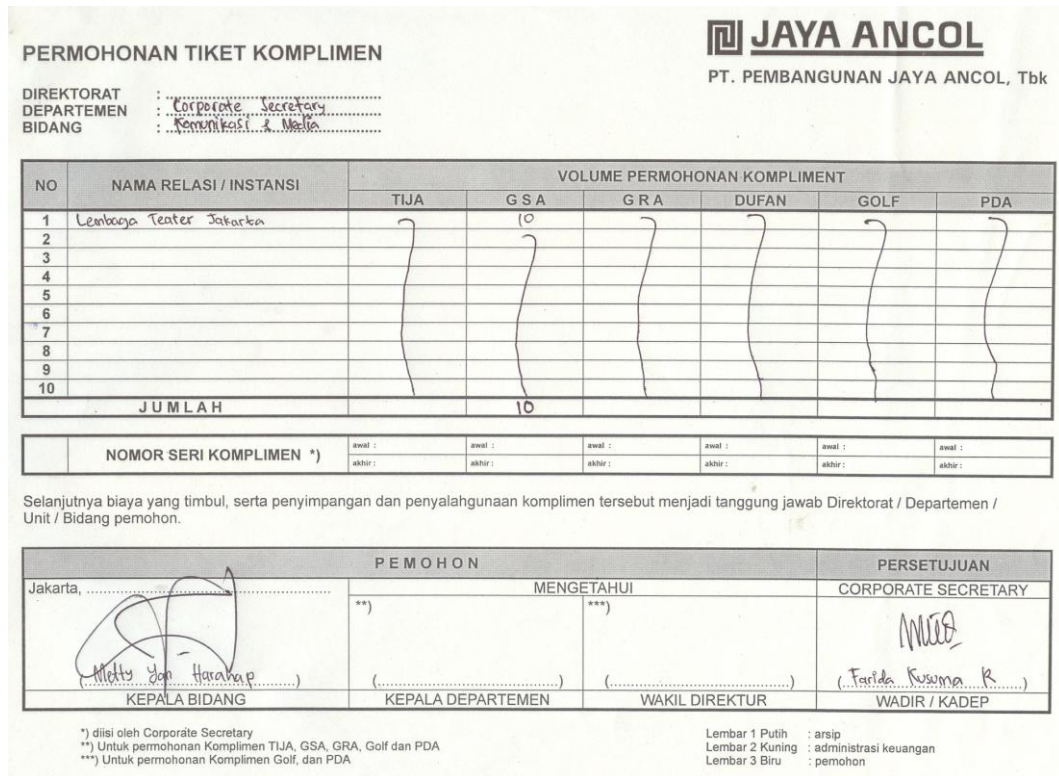 JAYA ANCOL
PERMOHONAN TIKET KOMPLIMEN
PT. PEMBANGUNAN JAYA ANCOL, Tbk
DIREKTORAT :
DEPARTEMEN : Corporate Secretary
BIDANG : Komunikasi & Media
NO NAMA RELASI / INSTANSI VOLUME PERMOHONAN KOMPLIMENT
TIJA GSA GRA DUFAN GOLF PDA
1 Lembaga Teater Jakarta 10
2
3
4
5
6
7
8
9
10
JUMLAH 10
NOMOR SERI KOMPLIMEN *) awal : awal : awal : awal : awal : awal :
akhir : akhir : akhir : akhir : akhir : akhir :
Selanjutnya biaya yang timbul, serta penyimpangan dan penyalahgunaan komplimen tersebut menjadi tanggung jawab Direktorat / Departemen /
Unit / Bidang pemohon.
PEMOHON PERSETUJUAN
Jakarta, MENGETAHUI CORPORATE SECRETARY
**) ***)
(Metty Yan Harahap) ( ) ( ) (Farida Kusuma R)
KEPALA BIDANG KEPALA DEPARTEMEN WAKIL DIREKTUR WADIR / KADEP
*) diisi oleh Corporate Secretary
**) Untuk permohonan Komplimen TIJA, GSA, GRA, Golf dan PDA
***) Untuk permohonan Komplimen Golf, dan PDA
Lembar 1 Putih : arsip
Lembar 2 Kuning : administrasi keuangan
Lembar 3 Biru : pemohon